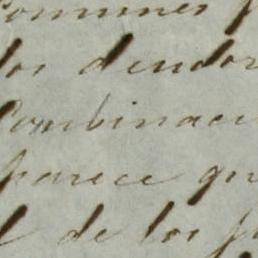 comunes p
los deudor
Combinaci
parece qu
l de los p